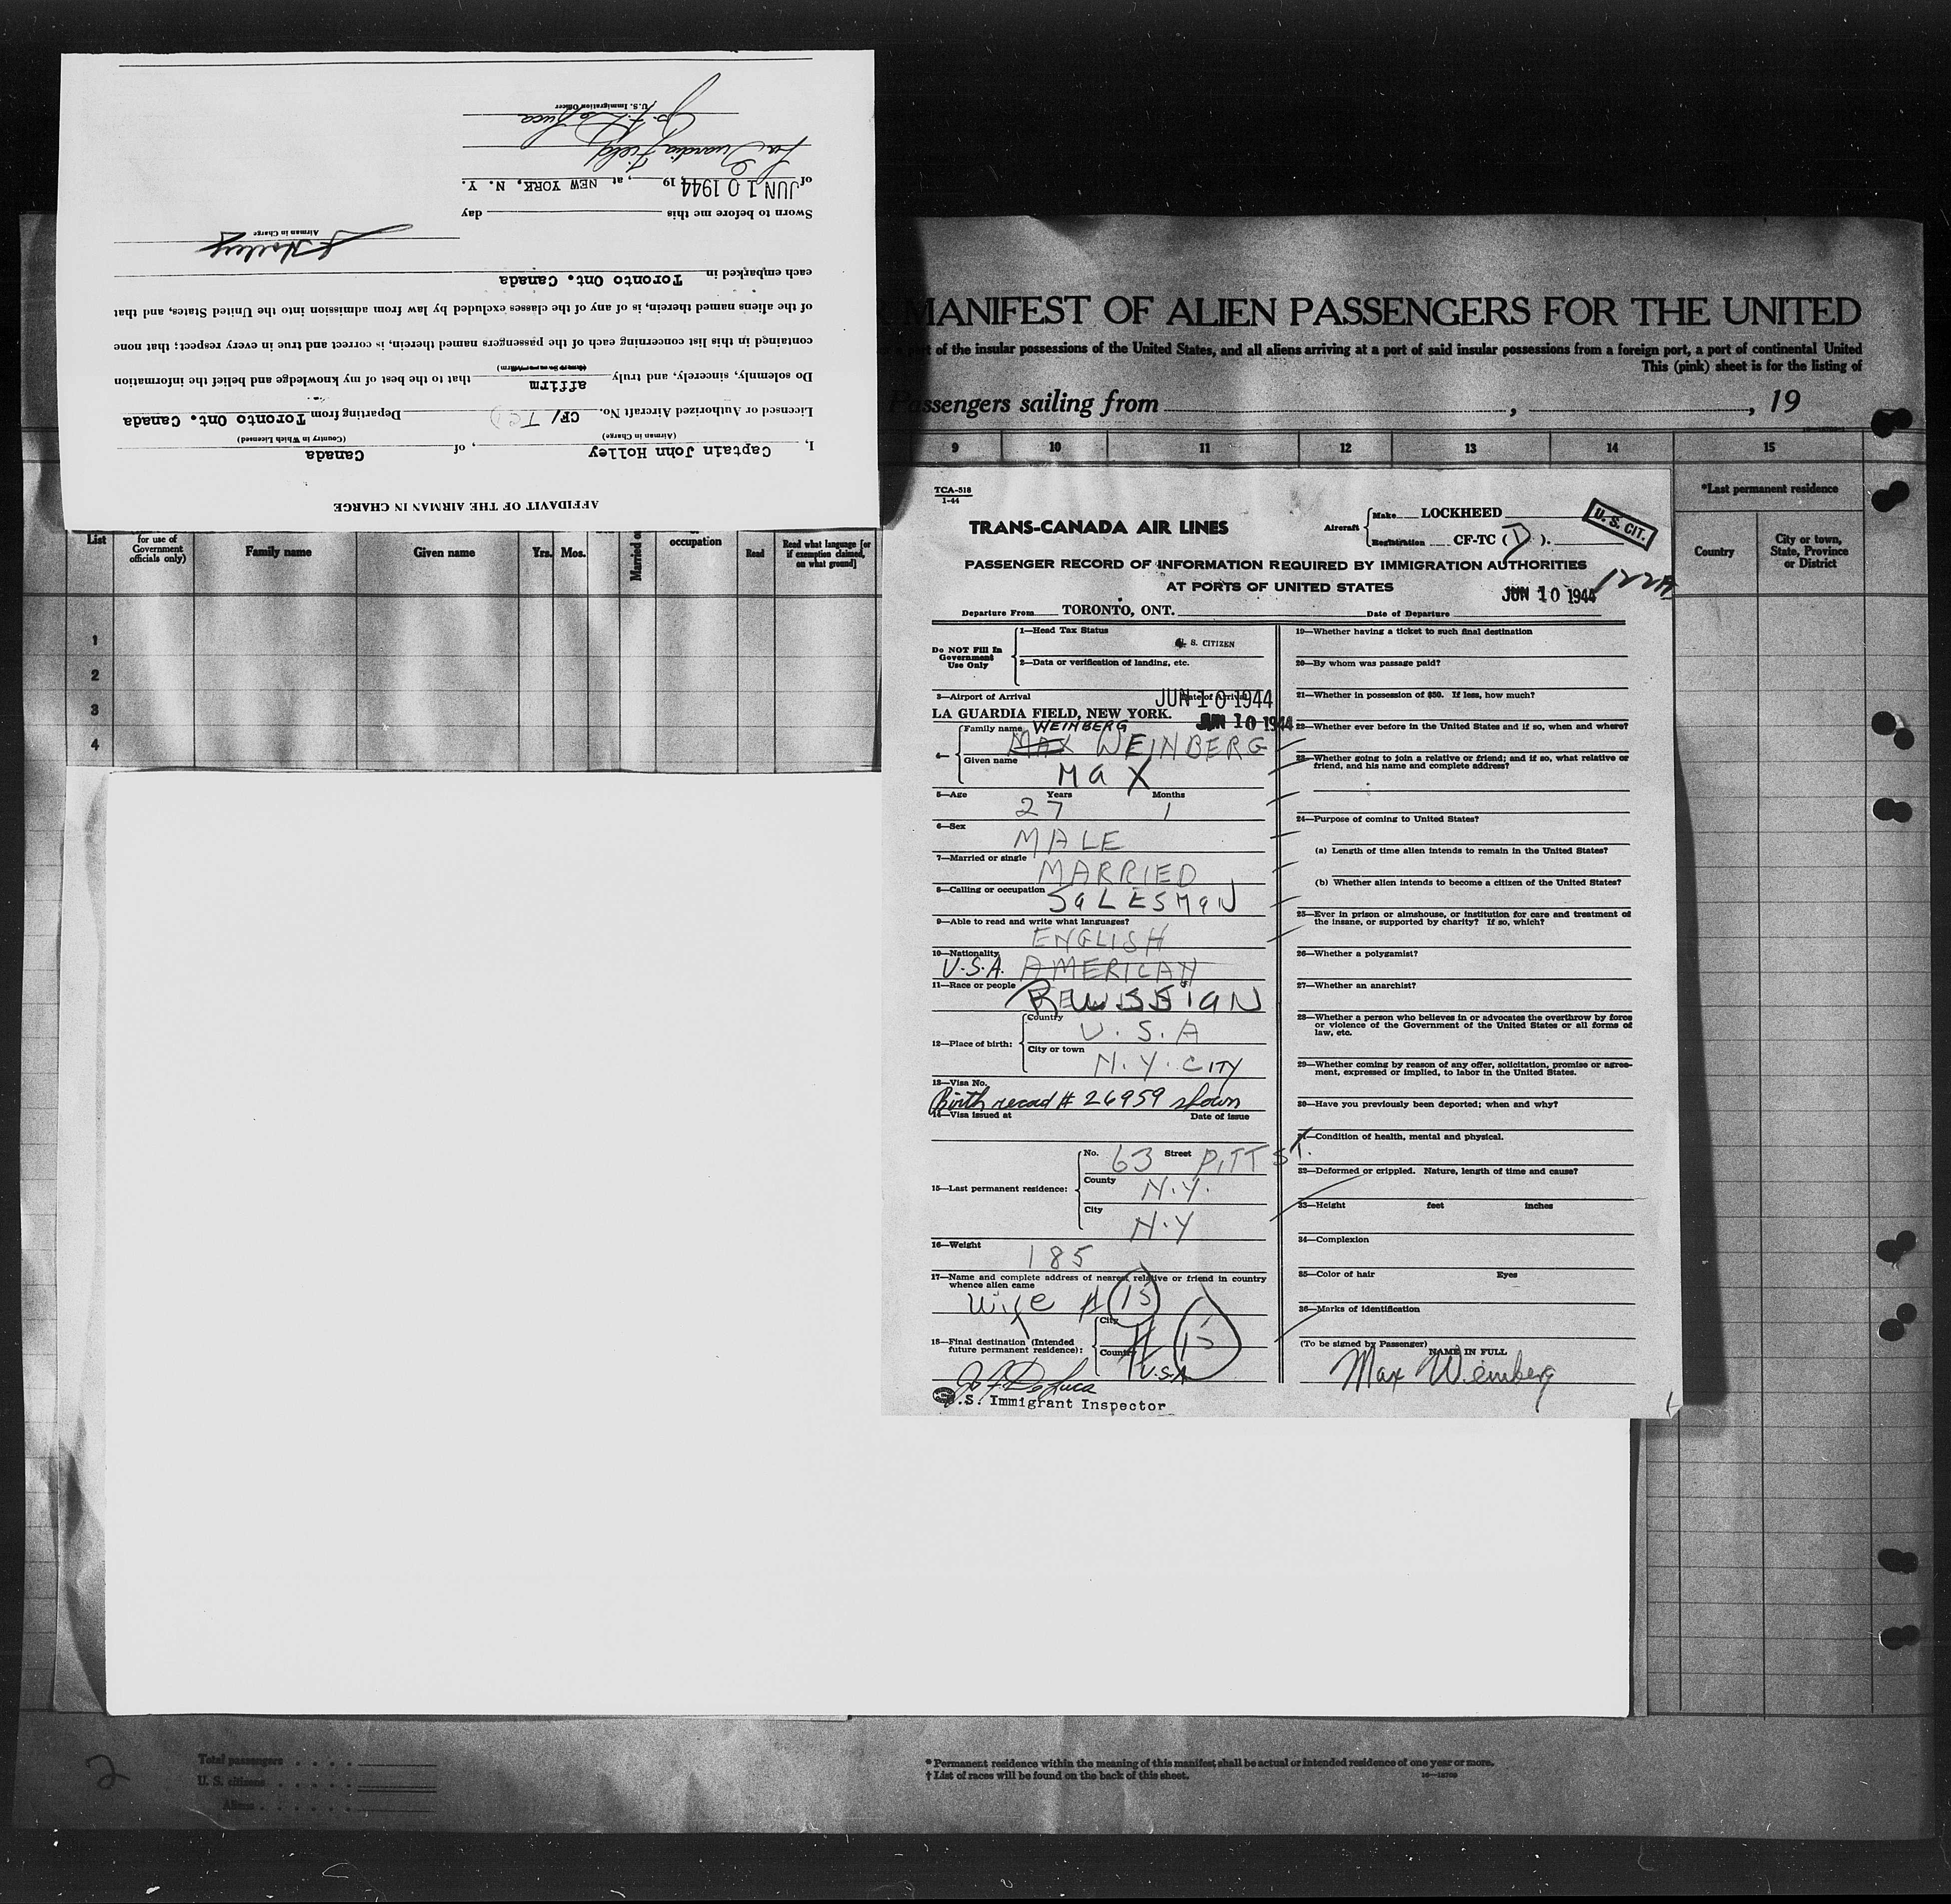 AFFIDAVIT OF THE AIRMAN IN CHARGE
I, Captain John Holley, of Canada
(Airman in Charge) (Country in Which Licensed)
Licensed or Authorized Aircraft No. CF/ TCD Departing from Toronto Ont. Canada
Do solemnly, sincerely, and truly affirm that to the best of my knowledge and belief the information
contained in this list concerning each of the passengers named therein, is correct and true in every respect; that none
of the aliens named therein, is of any of the classes excluded by law from admission into the United States, and that
each embarked in Toronto Ont. Canada
J Holley
Airman in Charge
Sworn to before me this day
of JUN 10 1944, 19, at NEW YORK, N. Y.
La Guardia Field
Jo. F. DeLuca
U.S. Immigration Officer
MANIFEST OF ALIEN PASSENGERS FOR THE UNITED
part of the insular possessions of the United States, and all aliens arriving at a port of said insular possessions from a foreign port, a port of continental United
This (pink) sheet is for the listing of
Passengers sailing from , , 19
9 10 11 12 13 14 15
List
for use of Government officials only)
Family name
Given name
Yrs. Mos.
Married o
occupation
Read
Read what language [or if exemption claimed, on what ground]
*Last permanent residence
Country
City or town, State, Province or District
1
2
3
4
TCA-518
1-44
TRANS-CANADA AIR LINES
Aircraft
Make LOCKHEED
Registration CF-TC (D).
U. S. CIT.
PASSENGER RECORD OF INFORMATION REQUIRED BY IMMIGRATION AUTHORITIES
AT PORTS OF UNITED STATES
JUN 10 1944
122A
Departure From TORONTO, ONT. Date of Departure
Do NOT Fill In Government Use Only
1—Head Tax Status
U. S. CITIZEN
2—Data or verification of landing, etc.
3—Airport of Arrival Date of Arrival
JUN 10 1944
LA GUARDIA FIELD, NEW YORK. JUN 10 1944
4— Family name WEINBERG
MAX WEINBERG
Given name MAX
5—Age Years 27 Months 1
6—Sex MALE
7—Married or single MARRIED
8—Calling or occupation SALESMAN
9—Able to read and write what languages?
ENGLISH
10—Nationality
U.S.A. AMERICAN
11—Race or people
12—Place of birth: Country U.S.A
City or town N.Y. CITY
13—Visa No.
Birth record # 26959 shown
14—Visa issued at Date of issue
15—Last permanent residence: No. 63 Street PITT ST.
County N.Y.
City N.Y
16—Weight 185
17—Name and complete address of nearest relative or friend in country whence alien came
Wife # 15
18—Final destination (Intended future permanent residence): City # 15
Country U.S.A
Jo F DeLuca
U.S. Immigrant Inspector
19—Whether having a ticket to such final destination
20—By whom was passage paid?
21—Whether in possession of $50. If less, how much?
22—Whether ever before in the United States and if so, when and where?
23—Whether going to join a relative or friend; and if so, what relative or friend, and his name and complete address?
24—Purpose of coming to United States?
(a) Length of time alien intends to remain in the United States?
(b) Whether alien intends to become a citizen of the United States?
25—Ever in prison or almshouse, or institution for care and treatment of the insane, or supported by charity? If so, which?
26—Whether a polygamist?
27—Whether an anarchist?
28—Whether a person who believes in or advocates the overthrow by force or violence of the Government of the United States or all forms of law, etc.
29—Whether coming by reason of any offer, solicitation, promise or agreement, expressed or implied, to labor in the United States.
30—Have you previously been deported; when and why?
31—Condition of health, mental and physical.
32—Deformed or crippled. Nature, length of time and cause?
33—Height feet inches
34—Complexion
35—Color of hair Eyes
36—Marks of identification
(To be signed by Passenger) NAME IN FULL
Max Weinberg
2
Total passengers
U. S. citizens
Aliens
* Permanent residence within the meaning of this manifest shall be actual or intended residence of one year or more.
† List of races will be found on the back of this sheet.